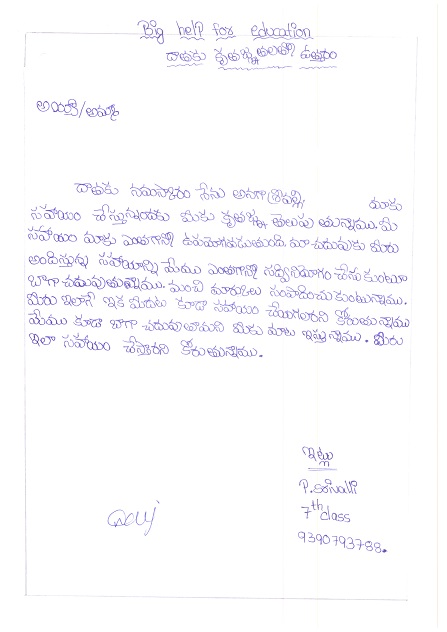 Big help for education
దాతకు కృతజ్ఞతలతో ఉత్తరం
అయ్య/అమ్మ
దాతకు నమస్కారం నేను అనగా శ్రీవల్లి మాకు
సహాయం చేస్తున్నందుకు మీకు కృతజ్ఞత తెలుపుతున్నాము. మీ
సహాయం మాకు ఎంతగానో ఉపయోగపడుతుంది. మా చదువుకు మీరు
అందిస్తున్న సహాయాన్ని మేము ఎంతగానో సద్వినియోగం చేసుకుంటూ
బాగా చదువుతున్నాము. మంచి మార్కులు సంపాదించుకుంటున్నాము.
మీరు ఇలాగే ఇక మీదట కూడా సహాయం చేయగలరని కోరుతున్నాము
మేము కూడా బాగా చదువుతామని మీకు మాట ఇస్తున్నాము. మీరు
ఇలా సహాయం చేస్తారని కోరుతున్నాము.
ఇట్లు
P. Srivalli
7th class
9390793788.